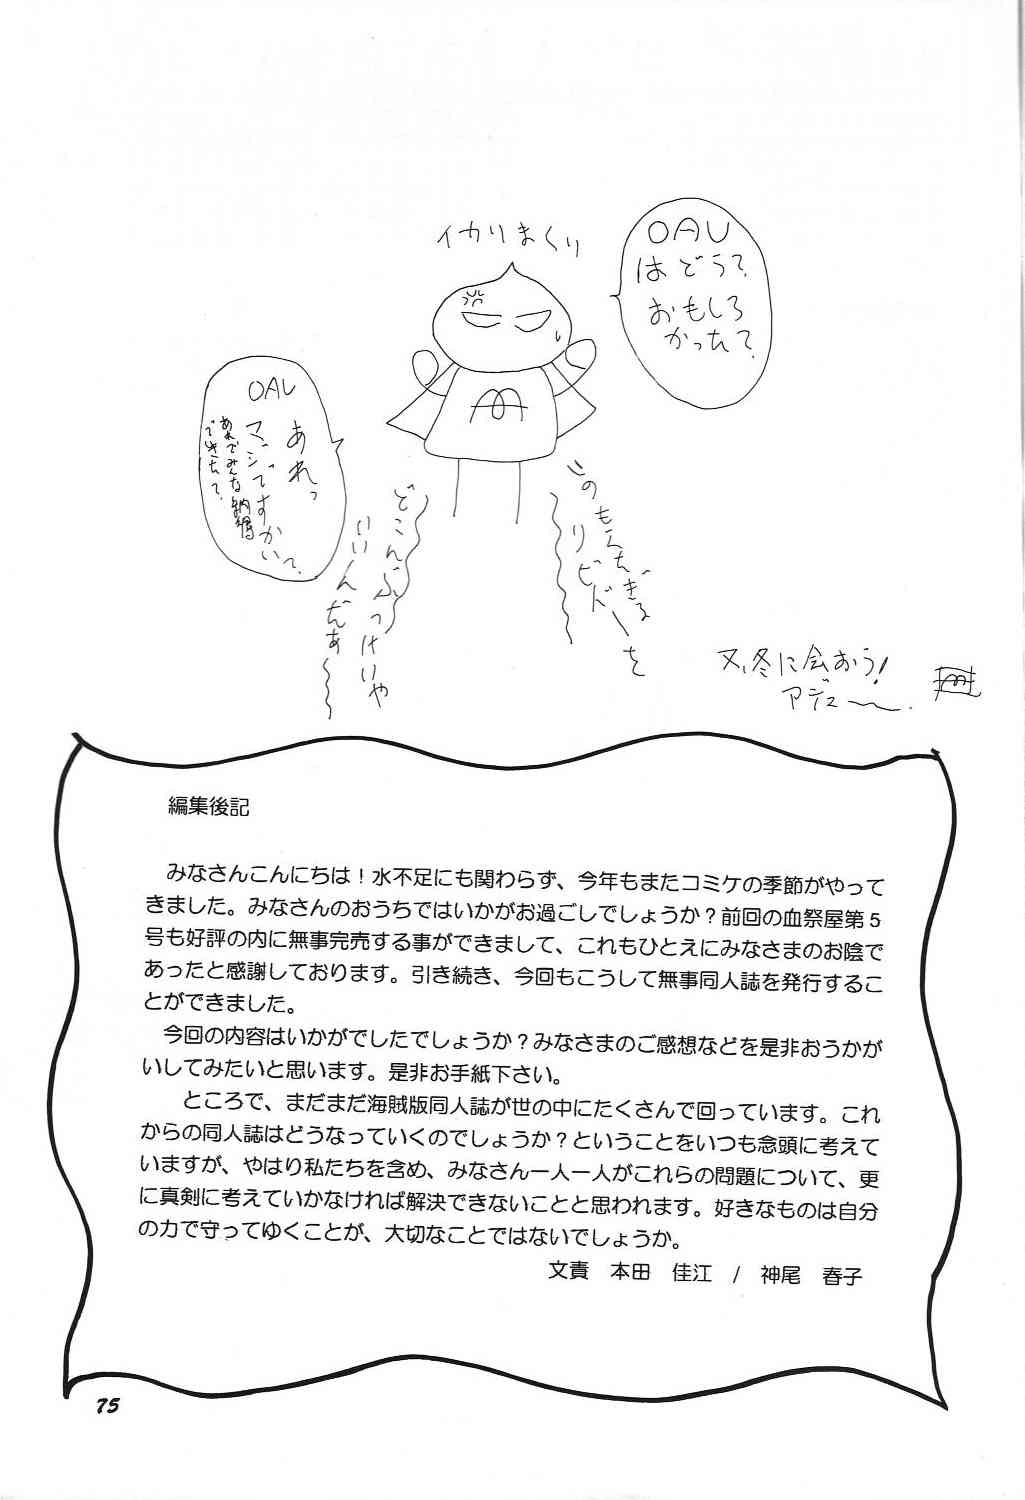 イカりまくり
OAU
はどうて?
おもしろ
かったて?
OAU
あれっ
マジですかいて?
あれでみんな納得
できたて?
このもえたぎる
リビドーを
どこんぶつけいや
いいんだぁ〜〜
又、冬に会おう!
アデュー〜.
編集後記
みなさんこんにちは!水不足にも関わらず、今年もまたコミケの季節がやって
きました。みなさんのおうちではいかがお過ごしでしょうか?前回の血祭屋第5
号も好評の内に無事完売する事ができまして、これもひとえにみなさまのお陰で
あったと感謝しております。引き続き、今回もこうして無事同人誌を発行するこ
とができました。
今回の内容はいかがでしたでしょうか?みなさまのご感想などを是非おうかが
いしてみたいと思います。是非お手紙下さい。
ところで、まだまだ海賊版同人誌が世の中にたくさんで回っています。これ
からの同人誌はどうなっていくのでしょうか?ということをいつも念頭に考えて
いますが、やはり私たちを含め、みなさん一人一人がこれらの問題について、更
に真剣に考えていかなければ解決できないことと思われます。好きなものは自分
の力で守ってゆくことが、大切なことではないでしょうか。
文責 本田 佳江 / 神尾 春子
75